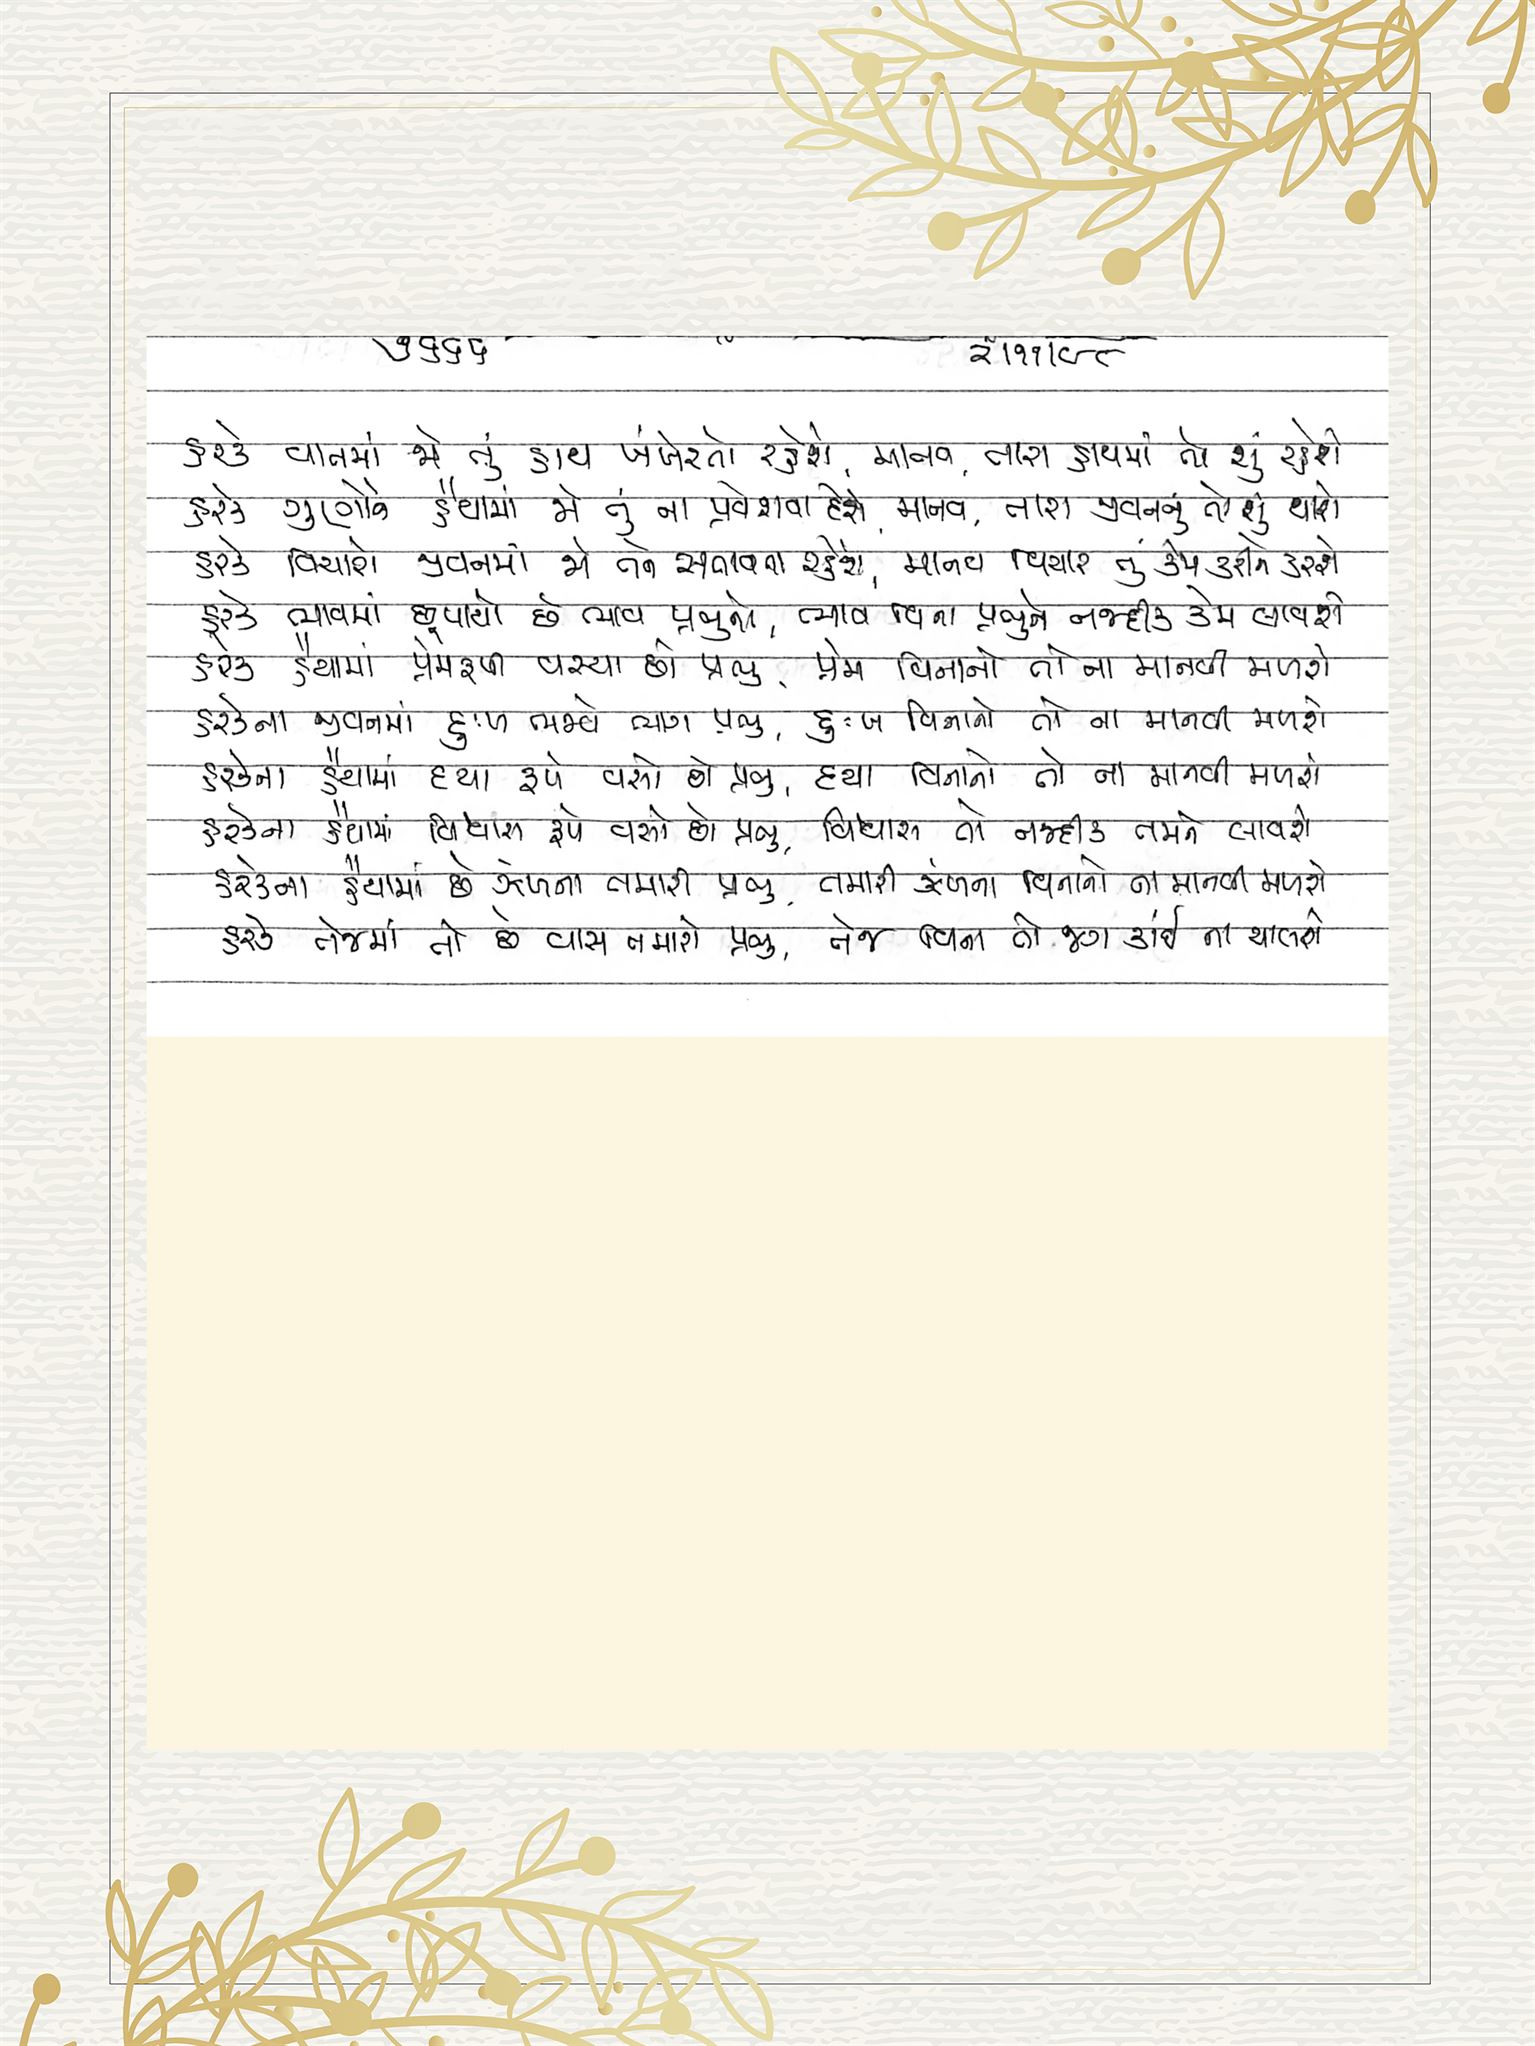 ૫૬૬૬ ૨/૧૧/૯૮
હરકે વાતમાં જો તું હાથ ખંખેરતો રહેશે, માનવ, તારા હાથમાં તો શું રહેશે
હરેક ગુણોને હૈયામાં જો તું ના પ્રવેશવા દેશે, માનવ, તારા જીવનનું તો શું થાશે
હરકે વિચારો જીવનમાં જો તને સતાવતા રહેશે, માનવ વિચાર તું કેમ કરીને કરશે
હરકે ભાવમાં છૂપાયો છે ભાવ પ્રભુનો, ભાવ વિના પ્રભુને નજદીક કેમ લાવશે
હરેક હૈયામાં પ્રેમરૂપી વસ્યા છો પ્રભુ, પ્રેમ વિનાનો તો ના માનવી મળશે
હરકેના જીવનમાં દુઃખ ભાગ પ્રભુ, દુઃખ વિનાનો તો ના માનવી મળશે
હરકેના હૈયામાં દયા રૂપે વસો છો પ્રભુ, દયા વિનાનો તો ના માનવી મળશે
હરકેના હૈયામાં વિશ્વાસ રૂપે વસો છો પ્રભુ, વિશ્વાસ તો નજદીક તમને લાવશે
હરેકના હૈયામાં છે ઝંખના તમારી પ્રભુ, તમારી ઝંખના વિનાનો ના માનવી મળશે
હરકે તેજમાં તો છે વાસ તમારો પ્રભુ, તેજ વિના તો જગ કાંઈ ના ચાલશે